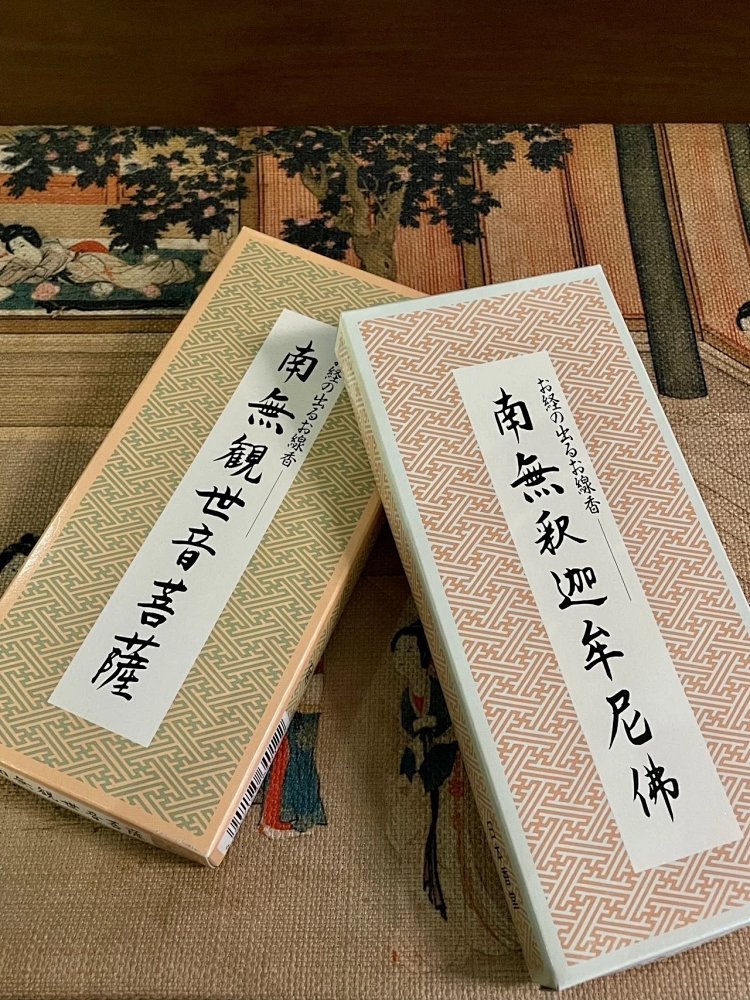 お経の出るお線香
南無観世音菩薩
お経の出るお線香
南無釈迦牟尼佛